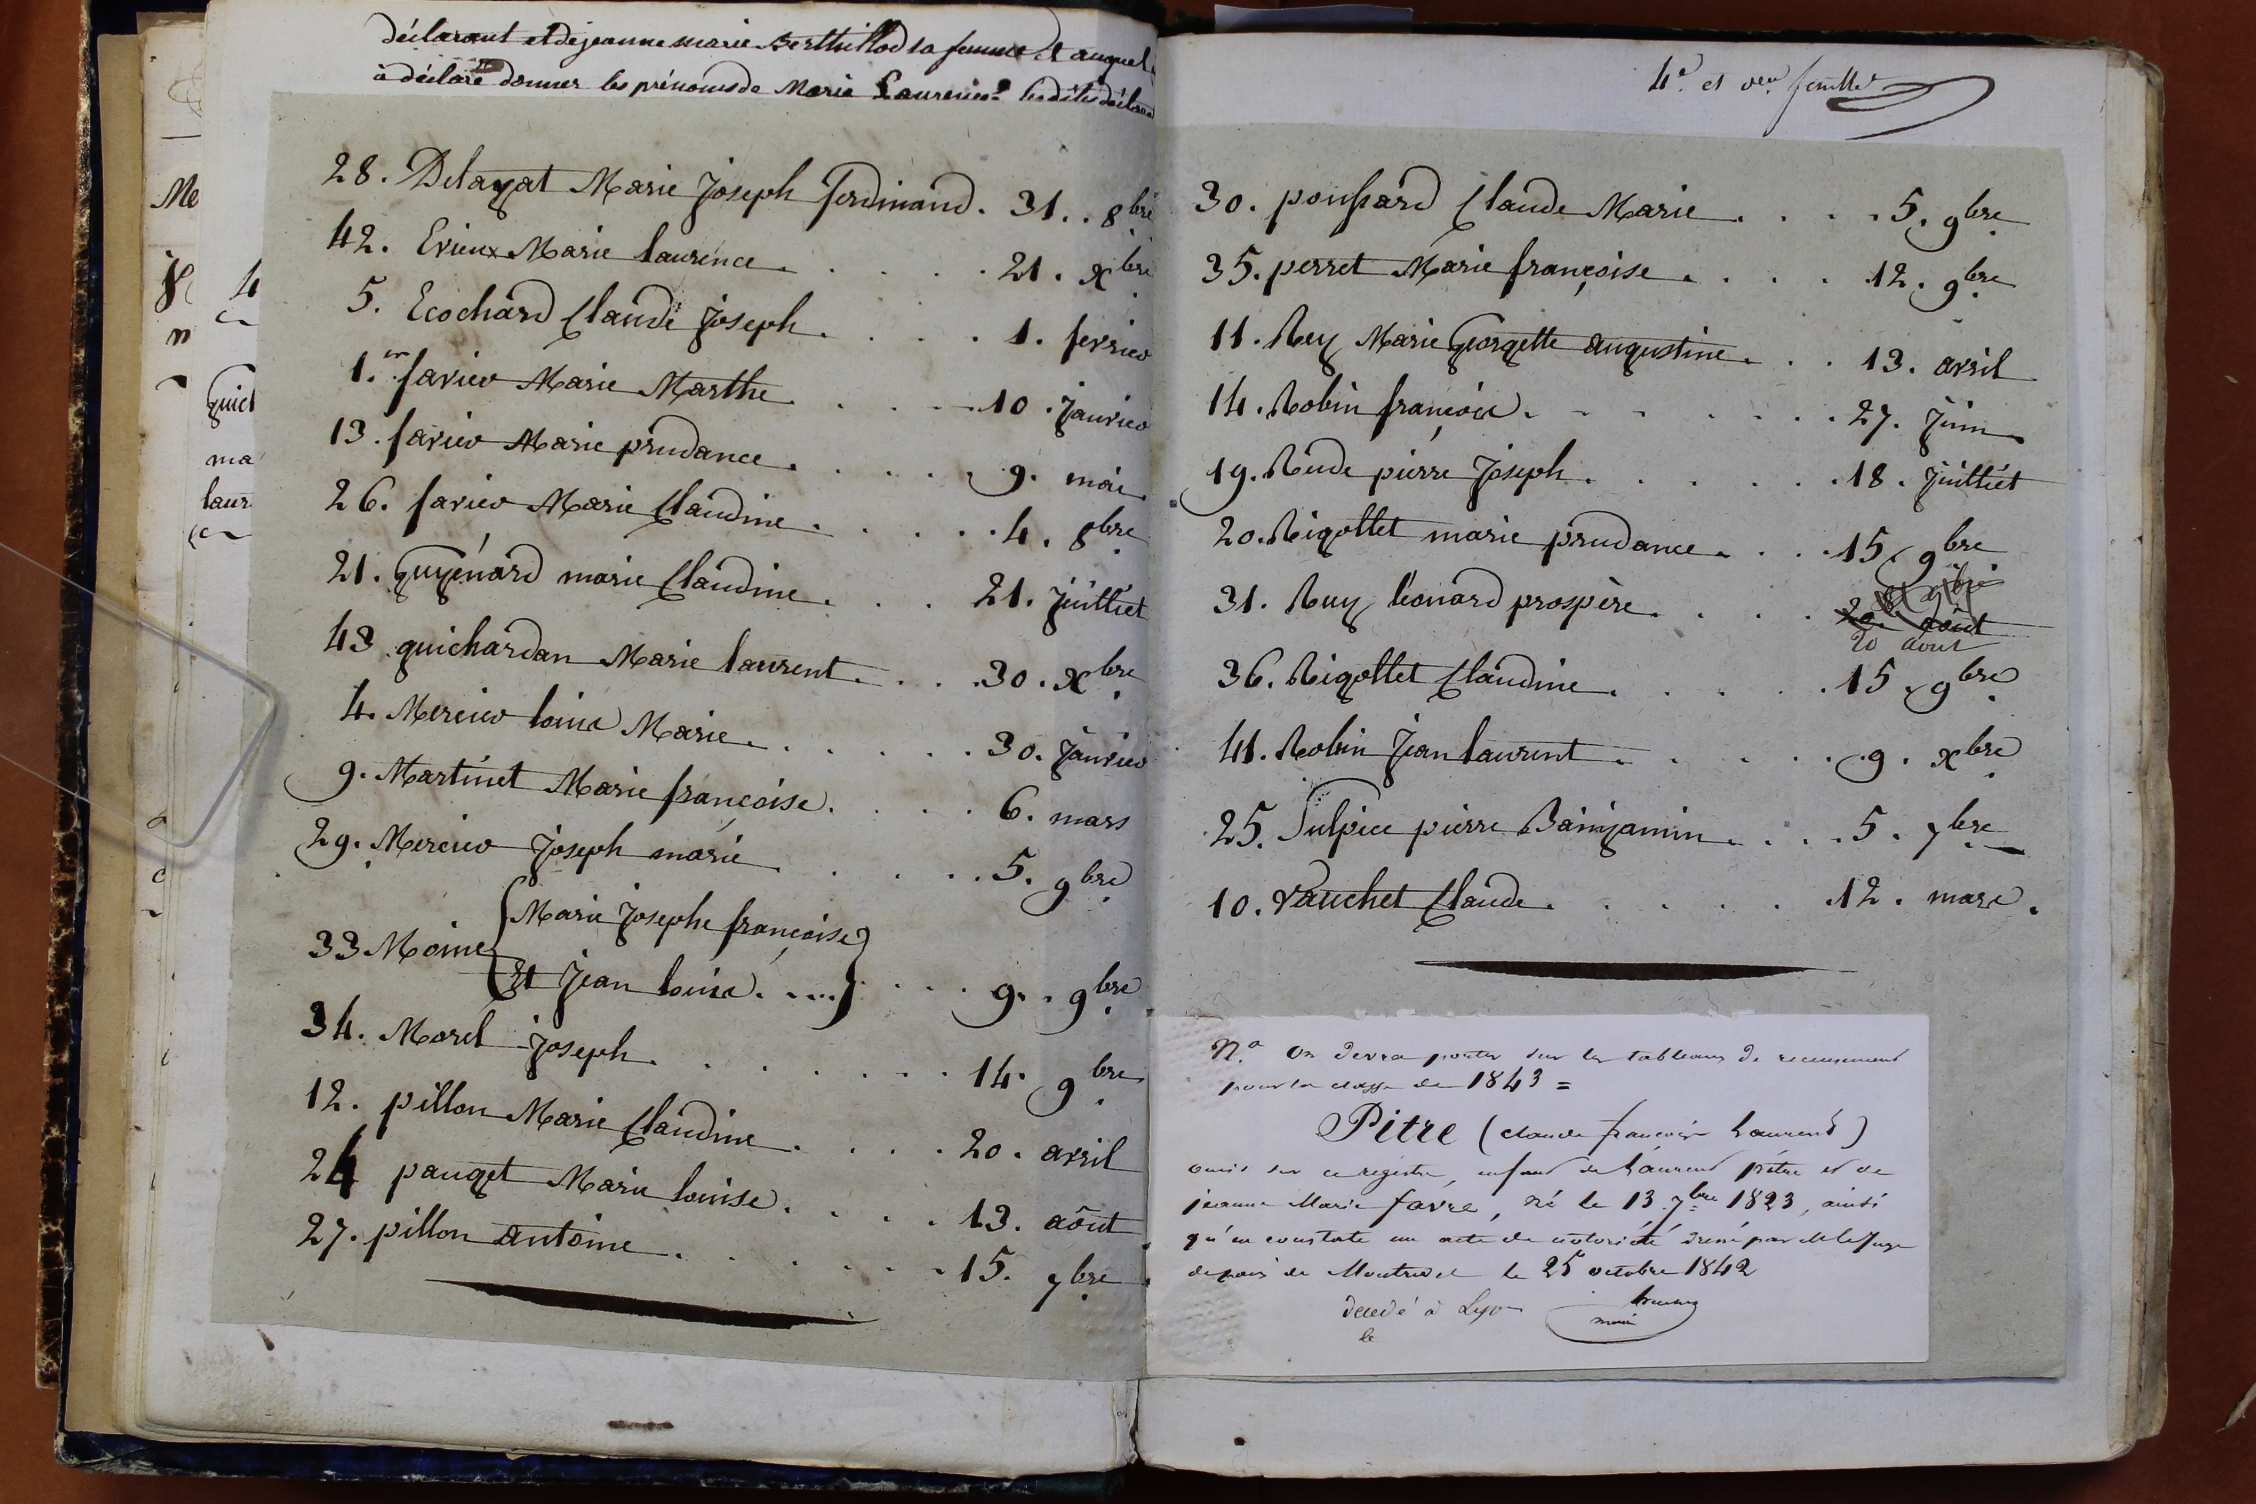 déclarant et de jeanne marie Berthillod sa femme et auquel
à déclaré donner les prénoms de Marie Laurence
28. Delayat Marie Joseph ferdinand. 31. 8bre
42. Erieux Marie laurence 21. Xbre
5. Ecochard Claude Joseph 1. fevrier
1.er favier Marie Marthe 10. Janvier
13. favier Marie prudance 9. mai
26. favier Marie Claudine 4. 8bre
21. Guyénard marie Claudine 21. Juilliet
43. guichardan Marie laurent 30. Xbre
4. Mercier louis Marie 30. Janvier
9. Martinet Marie françoise 6. mars
29. Mercier Joseph marie 5. 9bre
Marie Josephe françoise
33 Moine
Et Jean louis 9. 9bre
34. Morel Joseph 14. 9bre
12. pillon Marie Claudine 20. avril
24 pauget Marie louise 13. aôut
27. pillon antoine 15. 7bre
Me
4
guich
ma
laur
4e. et der. feuillet
30. poussard Claude Marie 5. 9bre
35. perret Marie françoise 12. 9bre
11. Rey Marie Georgette augustine 13. avril
14. Robin françois 27. Juin
19. Rude pierre Joseph 18. Juilliet
20. Rigollet marie prudance 15. 9bre
31. Ruy léonard prospère 20. août
20 août
36. Rigollet Claudine 15. 9bre
41. Robin Jean laurent 9. Xbre
25. Sulpice pierre Bainjamin 5. 7bre
10. Vauchet Claude 12. mars.
N.a On devra porter sur les tableaux de recensement
pour la classe de 1843 =
Pitre (claude françois Laurent)
omis sur ce registre, enfant de Laurent pitre et de
jeanne Marie favre, né le 13 7bre 1823, ainsi
qu'en constate un acte de notoriété dressé par M le Juge
de paix de Montrevel le 25 octobre 1842
décédé à Lyon
le
maire